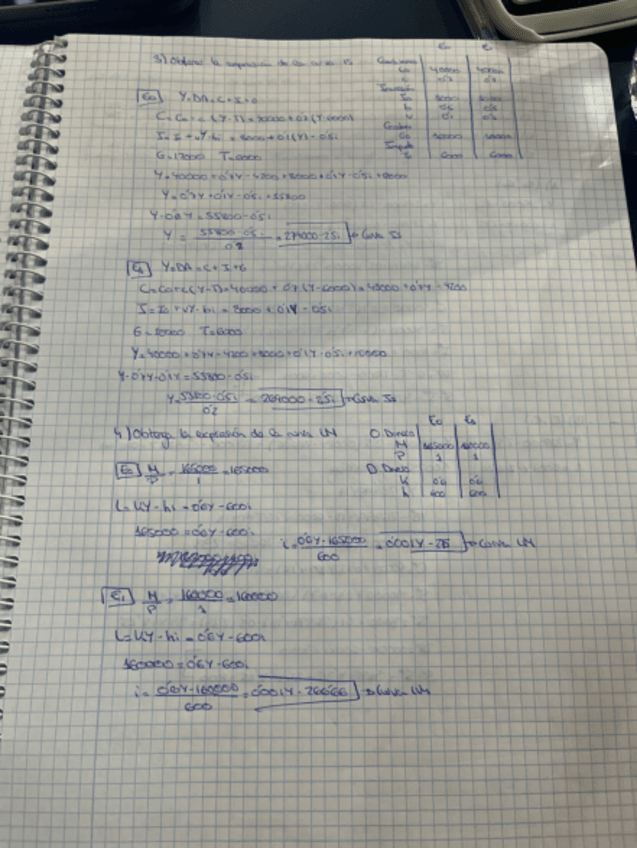 3) Obtener la expresión de la curva IS
E0 E1
Consumo
C0 40000 40000
c 0'7 0'7
Inversión
I0 8000 8000
b 0'5 0'5
v 0'1 0'1
G0 10000
T 6000 6000
E0 Y=DA=C+I+G
I=I0+vY-bi = 8000+0'1(Y)-0'5i
G=12000 T=6000
Y=40000+0'7Y-4200+8000+0'1Y-0'5i+12000
Y=0'7Y+0'1Y-0'5i+55800
Y-0'8Y=55800-0'5i
Y = 55800-0'5i / 0'2 = 279000-2'5i → Curva IS
E1 Y=DA=C+I+G
C=C0+c(Y-T)=40000+0'7(Y-6000)=40000+0'7Y-4200
I=I0+vY-bi=8000+0'1Y-0'5i
G=10000 T=6000
Y=40000+0'7Y-4200+8000+0'1Y-0'5i+10000
Y-0'7Y-0'1Y=53800-0'5i
Y=53800-0'5i / 0'2 = 269000-2'5i → Curva IS
4) Obtenga la expresión de la curva LM
E0 E1
O. Dinero
M 165000 160000
P 1 1
D. Dinero
k 0'6 0'6
h 600 600
E0 M/P = 165000/1 = 165000
L=kY-hi=0'6Y-600i
165000=0'6Y-600i
i=0'6Y-165000 / 600 = 0'001Y-275 → Curva LM
E1 M/P = 160000/1 = 160000
L=kY-hi=0'6Y-600i
160000=0'6Y-600i
i=0'6Y-160000 / 600 = 0'001Y-266'66 → Curva LM